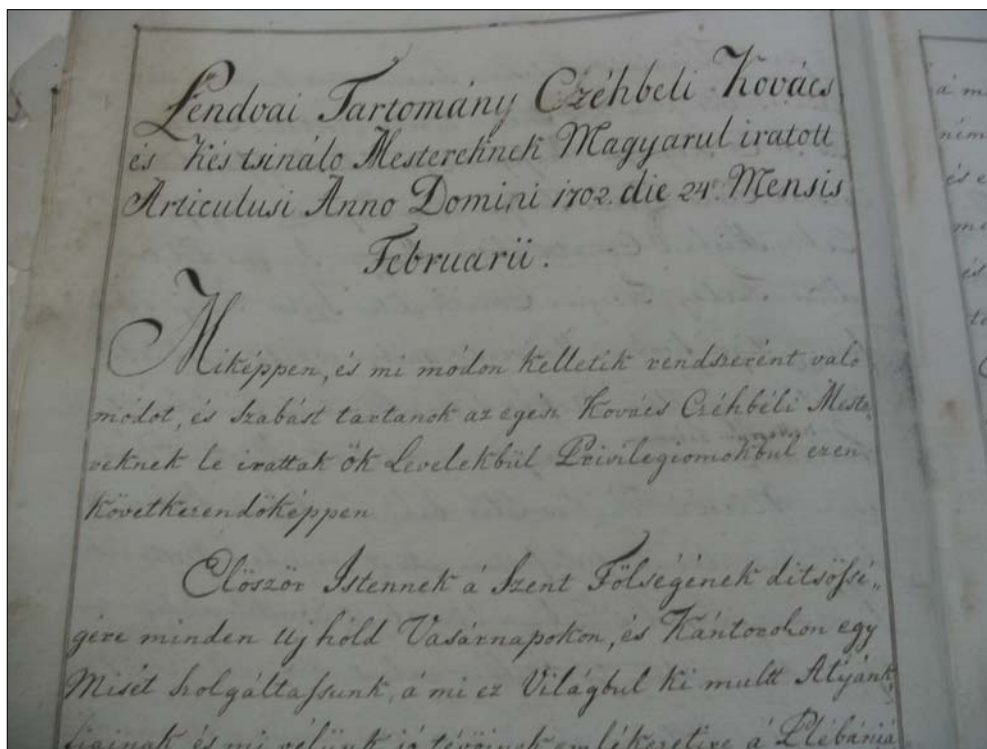 Lendvai Tartomány Czéhbeli Kovács
és Kés tsináló Mestereknek Magyarul iratott
Articulusi Anno Domini 1702. die 24. Mensis
Februarii.
Miképpen, és mi módon kelletik rendszerént való
módot, és szabást tartanok az egész Kovács Czéhbéli Meste,,
reknek le irattak ök Levelekbül Privilegiomokbul ezen
következendöképpen
Elöször Istennek á Szent Fölségének ditsössé,,
gére minden Uj hóld Vasárnapokon, és Kántorokon egy
Misét szolgáltassunk, á mi ez Világbul ki multt Atyánk
fiainak és mi vélünk jó tévöinek emlékezetire á Plébániá
á m
ném
és e
és